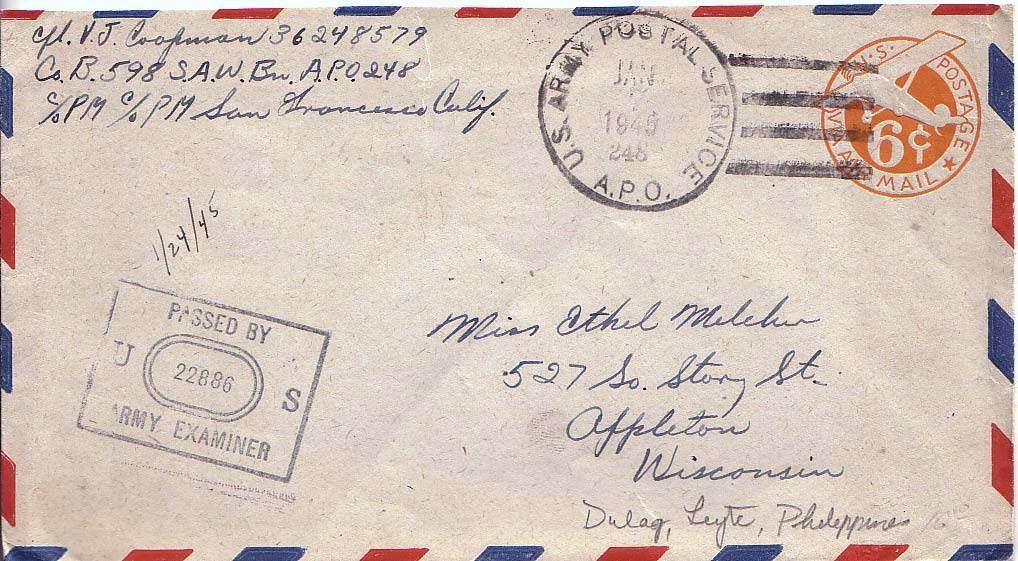 Cpl. V. J. Coopman 36248579
Co. B. 598 S.A.W. Bn. A.P.O. 248
c/o PM c/o PM San Francesco Calif.
U.S. ARMY POSTAL SERVICE
JAN
1945
248
A.P.O.
U.S. POSTAGE
6¢
VIA AIR MAIL
1/24/45
PASSED BY
U 22886 S
ARMY EXAMINER
Miss Ethel Melcher
527 So. Story St.
Appleton
Wisconsin
Dulag, Leyte, Philippines